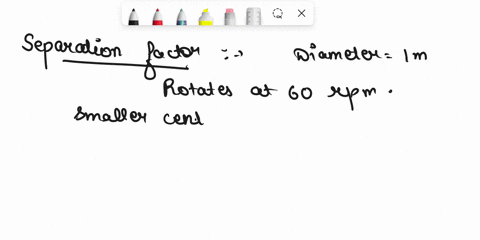 Separation factor :→ Diameter = 1 m
Rotates at 60 rpm.
Smaller cent